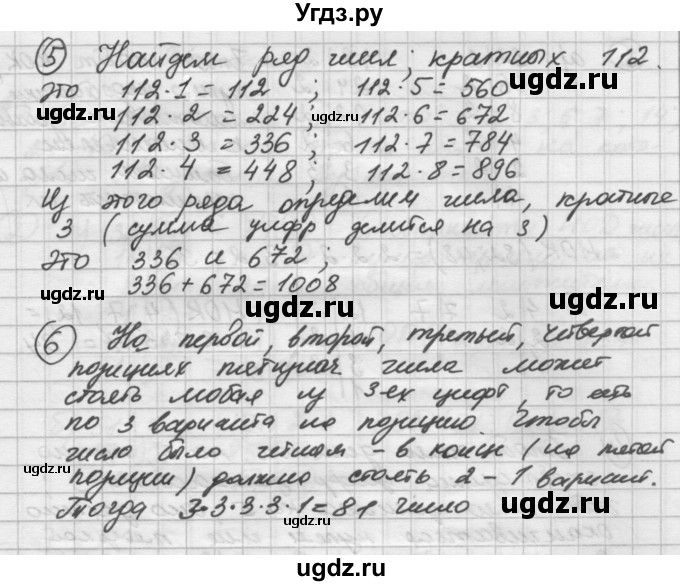 Угдз.ру
5 Найдем ряд чисел, кратных 112.
это 112·1=112 ; 112·5=560
112·2=224; 112·6=672
112·3=336; 112·7=784
112·4=448; 112·8=896
Из этого ряда определим числа, кратные
3 (сумма цифр делится на 3)
это 336 и 672;
336+672=1008
6 На первой, второй, третьей, четвертой
позициях пятизнач числа может
стоять любая из 3-ех цифр, то есть
по 3 варианта на позицию. Чтобы
число было четным – в конце (на пятой
позиции) должно стоять 2 – 1 вариант.
Тогда 3·3·3·3·1=81 число
ugdz.ru